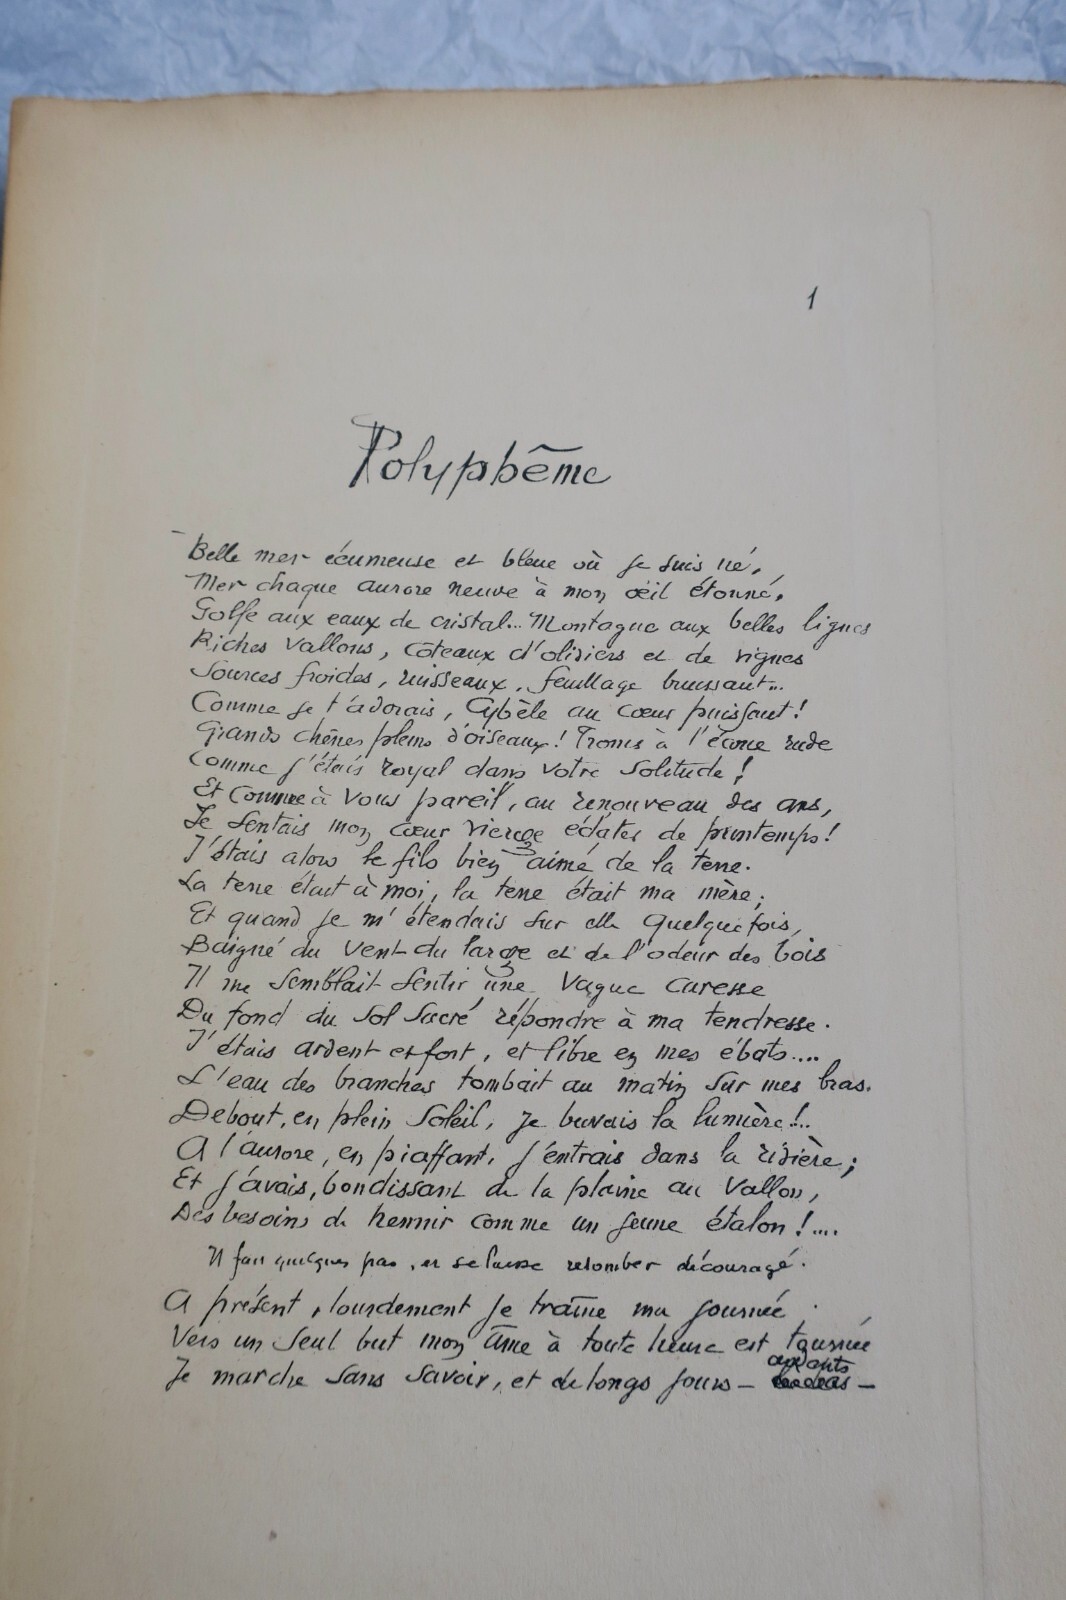 1
Polyphême
Belle mer écumeuse et bleue où je suis né,
Mer chaque aurore neuve à mon œil étonné,
Golfe aux eaux de cristal... Montagne aux belles lignes
Riches vallons, côteaux d'oliviers et de vignes
Sources froides, ruisseaux, feuillage bruissant...
Comme je t'adorais, Cybèle au cœur puissant!
Grands chênes pleins d'oiseaux! Troncs à l'écorce rude
Comme j'étais royal dans votre solitude!
Et comme à vous pareil, au renouveau des ans,
Je sentais mon cœur vierge éclater de printemps!
J'étais alors le fils bien aimé de la terre.
La terre était à moi, la terre était ma mère;
Et quand je m'étendais sur elle quelquefois,
Baigné du vent du large et de l'odeur des bois
Il me semblait sentir une vague caresse
Du fond du sol sacré répondre à ma tendresse.
J'étais ardent et fort, et libre en mes ébats....
L'eau des branches tombait au matin sur mes bras.
Debout, en plein soleil, je buvais la lumière!..
A l'aurore, en piaffant, j'entrais dans la rivière;
Et j'avais, bondissant de la plaine au vallon,
Des besoins de hennir comme un jeune étalon!....
Il fait quelques pas, et se laisse retomber découragé.
A présent, lourdement je traîne ma journée.
Vers un seul but mon âme à toute heure est tournée
Je marche sans savoir, et de longs jours - ardents -